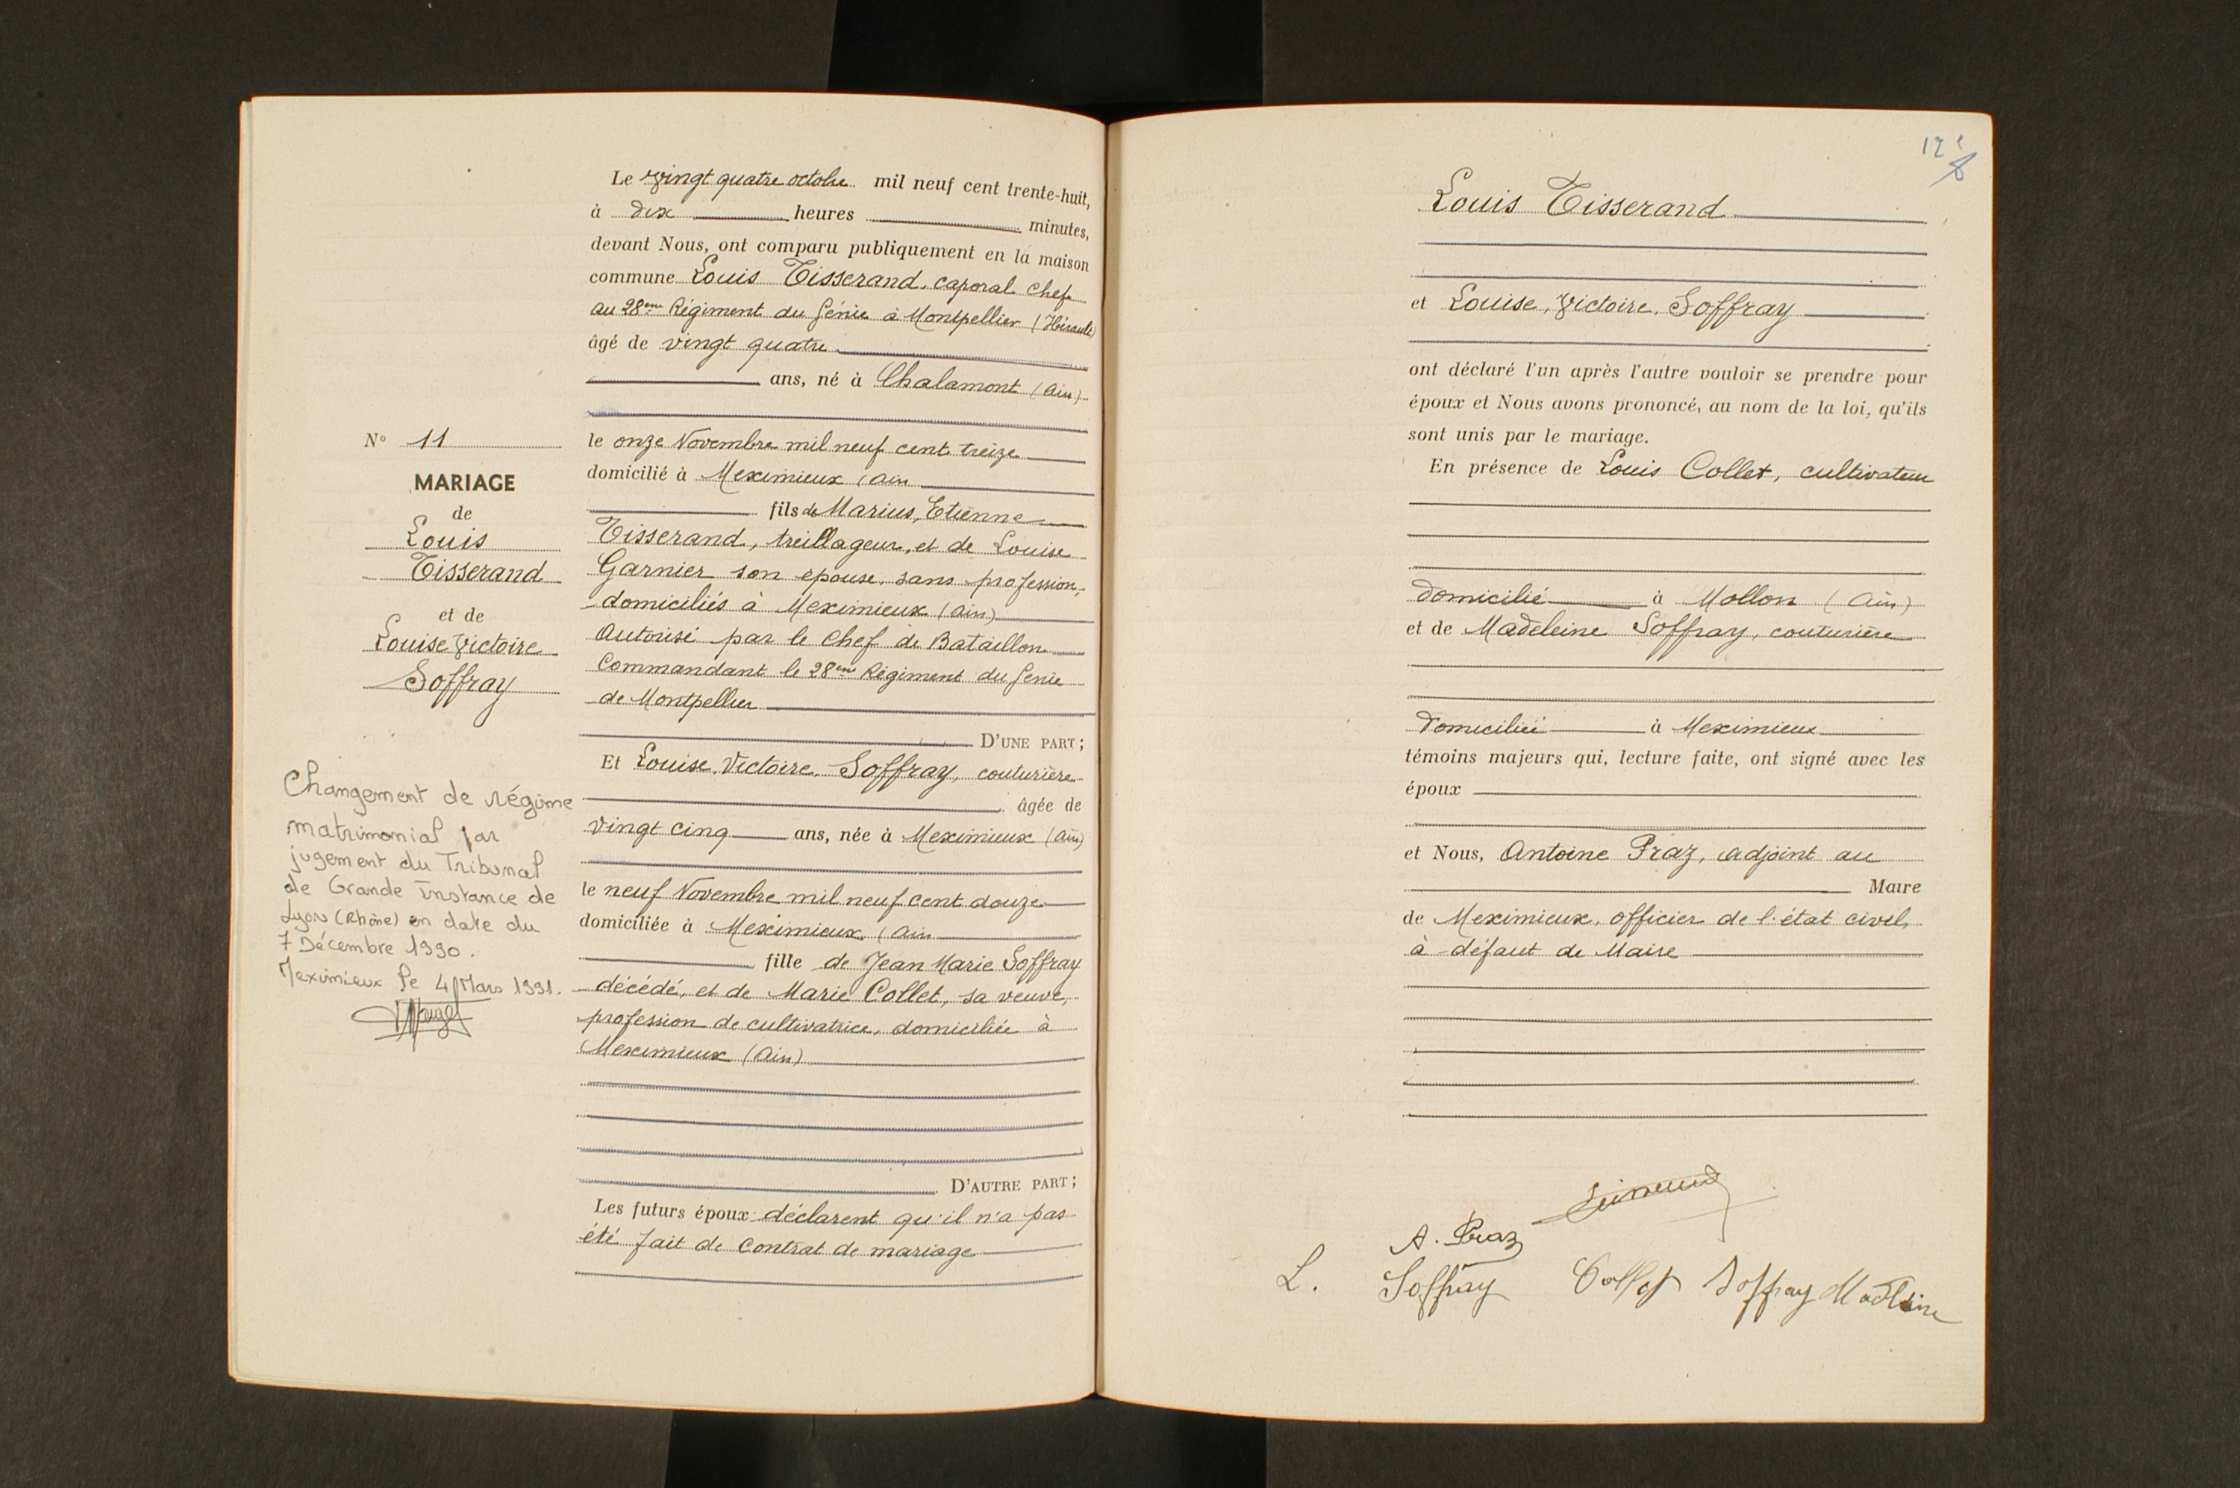 N° 11
MARIAGE
de
Louis
Tisserand
et de
Louise Victoire
Soffray
Changement de régime
matrimonial par
jugement du Tribunal
de Grande instance de
Lyon (Rhône) en date du
7 Décembre 1990.
Meximieux le 4 Mars 1991.
Le vingt quatre octobre mil neuf cent trente-huit,
à dix heures minutes,
devant Nous, ont comparu publiquement en la maison
commune Louis Tisserand, caporal chef
au 28eme Régiment du Génie à Montpellier (Hérault)
âgé de vingt quatre
ans, né à Chalamont (Ain)
le onze Novembre mil neuf cent treize
domicilié à Meximieux (Ain
fils de Marius, Etienne
Tisserand, treillageur, et de Louise
Garnier son épouse, sans profession,
domiciliés à Meximieux (Ain)
Autorisé par le Chef de Bataillon
Commandant le 28eme Régiment du Génie
de Montpellier
D'UNE PART;
Et Louise, Victoire, Soffray, couturière
âgée de
vingt cinq ans, née à Meximieux (Ain)
le neuf Novembre mil neuf cent douze
domiciliée à Meximieux (Ain
fille de Jean Marie Soffray
décédé, et de Marie Collet, sa veuve,
profession de cultivatrice, domiciliée à
Meximieux (Ain)
D'AUTRE PART;
Les futurs époux déclarent qu'il n'a pas
été fait de contrat de mariage
Louis Tisserand
et Louise, Victoire, Soffray
ont déclaré l'un après l'autre vouloir se prendre pour
époux et Nous avons prononcé, au nom de la loi, qu'ils
sont unis par le mariage.
En présence de Louis Collet, cultivateur
domicilié à Mollon (Ain)
et de Madeleine Soffray, couturière
domiciliée à Meximieux
témoins majeurs qui, lecture faite, ont signé avec les
époux
et Nous, Antoine Praz, adjoint au
Maire
de Meximieux, officier de l'état civil,
à défaut de Maire
A. Praz
L. Soffray Collet Soffray Madeleine